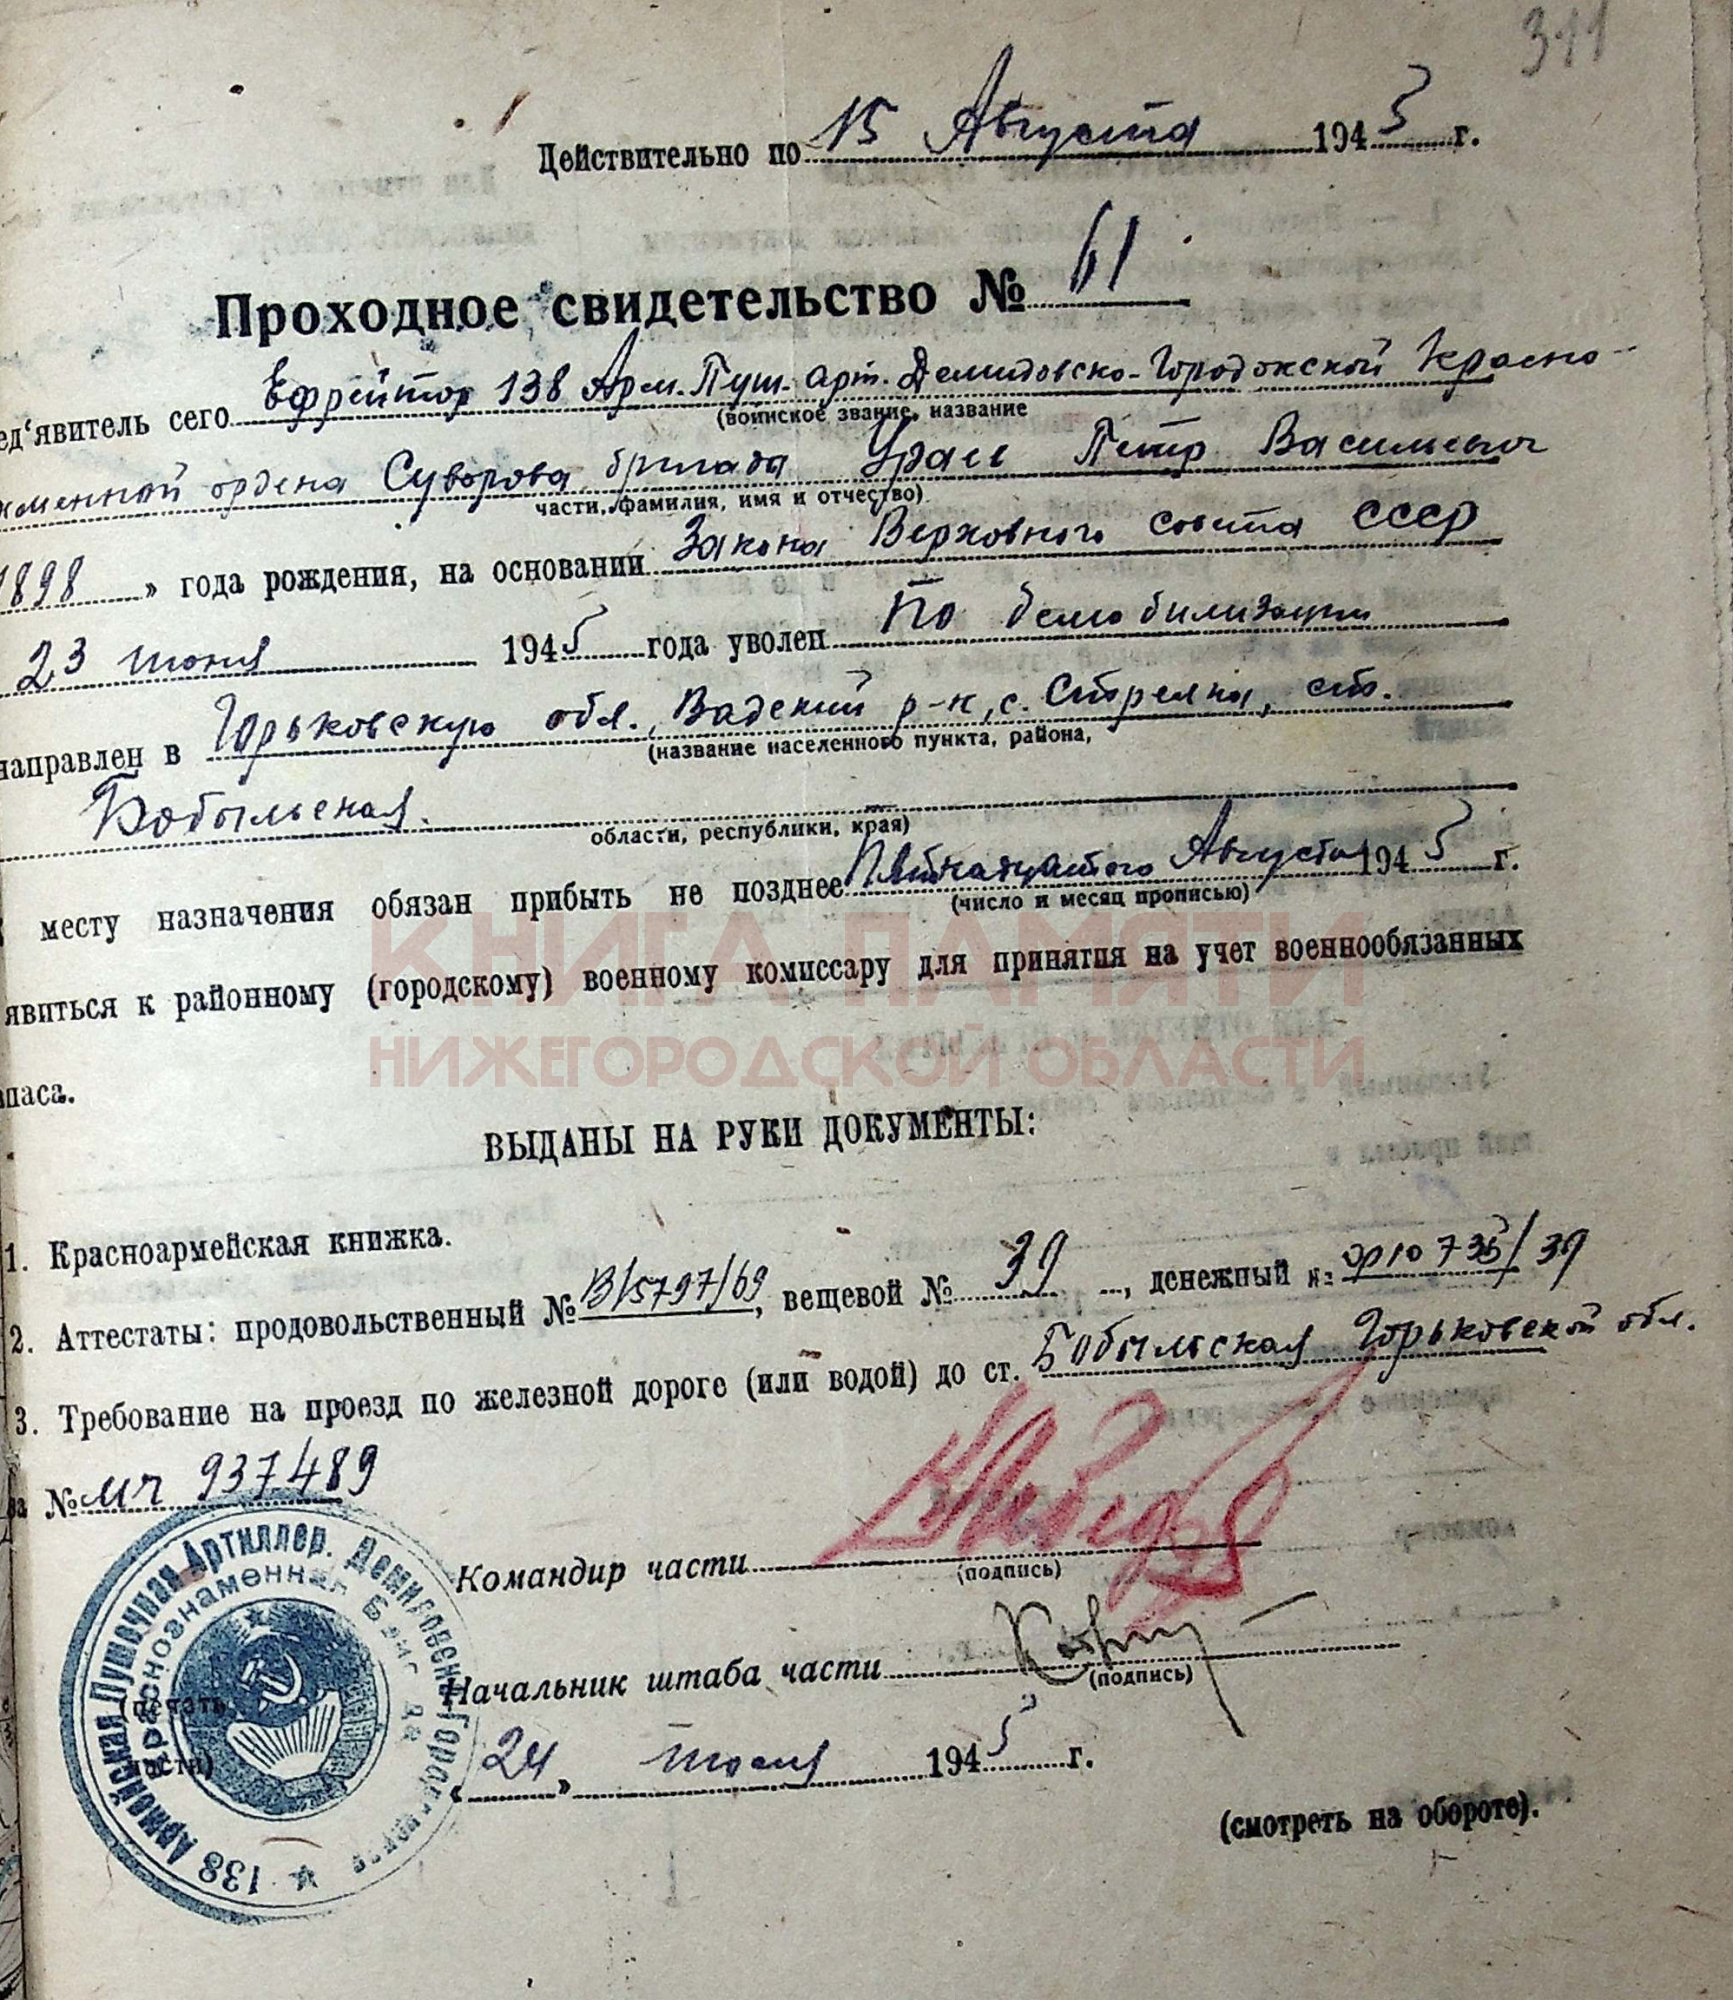 311
Действительно по 15 Августа 1945 г.
Проходное свидетельство № 61
ед‘явитель сего Ефрейтор 138 Арм. Пуш. арт. Демидовско-Городокской Красно-
(воинское звание, название
наменной ордена Суворова бригады Петр Васильевич
части, фамилия, имя и отчество)
1898 » года рождения, на основании Закона Верховного Совета СССР
23 июня 1945 года уволен По демобилизации
направлен в Горьковскую обл., Вадский р-н, с. Стрелка, ст.
(название населенного пункта, района,
Бобыльская.
области, республики, края)
месту назначения обязан прибыть не позднее Пятнадцатого Августа 1945 г.
(число и месяц прописью)
явиться к районному (городскому) военному комиссару для принятия на учет военнообязанных
апаса.
КНИГА ПАМЯТИ
НИЖЕГОРОДСКОЙ ОБЛАСТИ
ВЫДАНЫ НА РУКИ ДОКУМЕНТЫ:
1. Красноармейская книжка.
2. Аттестаты: продовольственный № В/5797/69, вещевой № 39, денежный № 010735/39
3. Требование на проезд по железной дороге (или водой) до ст. Бобыльская Горьковской обл.
за № МЧ 937489
Командир части
(подпись)
Начальник штаба части
(подпись)
(печать
части)
138 Армейская Пушечная Артиллер. Демидовско-Городокская
Краснознаменная Бригада
« 24 » июля 1945 г.
(смотреть на обороте).